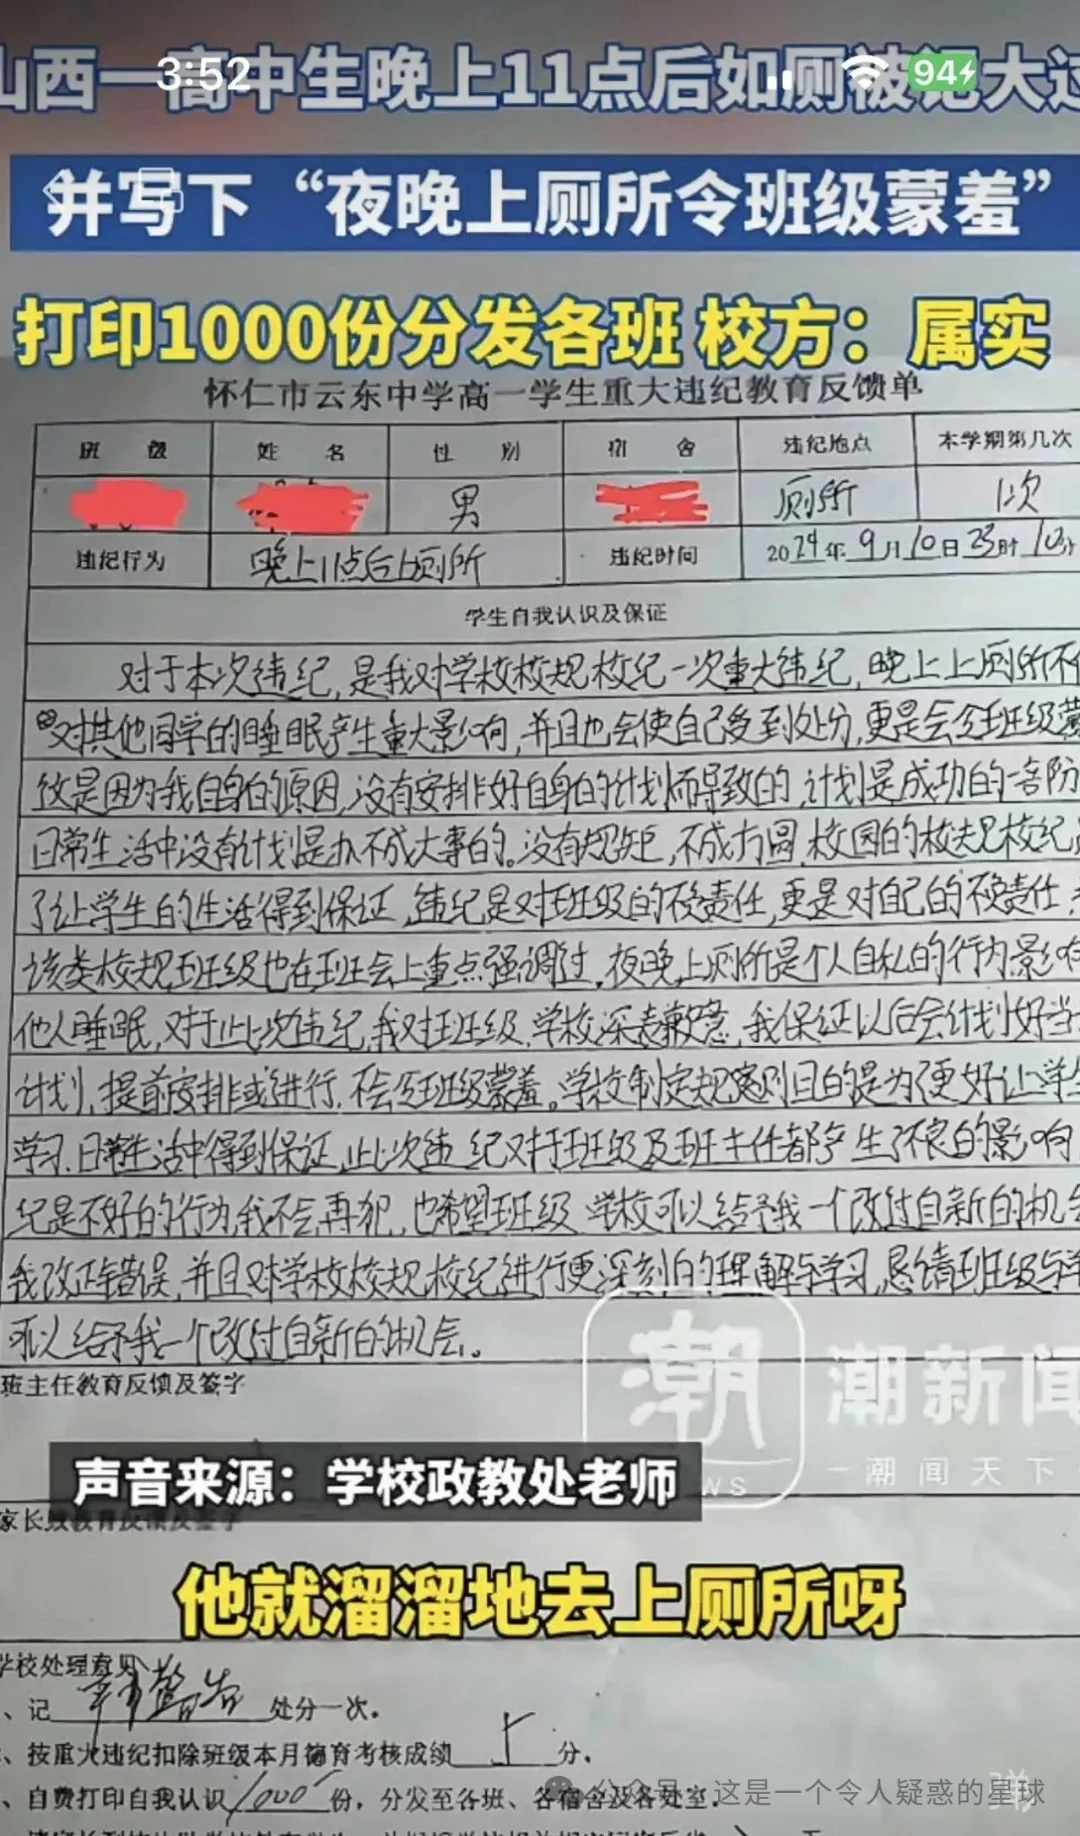 山西一高中生晚上11点后如厕被记大过
3:52
94
并写下“夜晚上厕所令班级蒙羞”
打印1000份分发各班 校方：属实
怀仁市云东中学高一学生重大违纪教育反馈单
班 级 姓 名 性 别 宿 舍 违纪地点 本学期第几次
男 厕所 1次
违纪行为 晚上11点后上厕所 违纪时间 2024年9月10日23时10分
学生自我认识及保证
对于本次违纪，是我对学校校规校纪一次重大违纪，晚上上厕所不
对其他同学的睡眠产生重大影响，并且也会使自己受到处分，更是会令班级蒙
这是因为我自身的原因，没有安排好自身的计划而导致的，计划是成功的一部
日常生活中没有计划是办不成大事的。没有规矩，不成方圆，校园的校规校纪
了让学生的生活得到保证，违纪是对班级的不负责任，更是对自己的不负责任，
该类校规班级也在班会上重点强调过，夜晚上厕所是个人自私的行为影响
他人睡眠，对于此次违纪，我对班级、学校深表歉意，我保证以后会计划好当
计划，提前安排或进行，不会令班级蒙羞。学校制定规章则目的是为了更好让学生
学习、日常生活中得到保证，此次违纪对于班级及班主任都产生了不良的影响
纪是不好的行为，我不会再犯，也希望班级、学校可以给予我一个改过自新的机会
我改正错误，并且对学校校规校纪进行更深刻的理解与学习，恳请班级与学
可以给予我一个改过自新的机会。
班主任教育反馈及签字
潮
潮新闻
潮闻天下
NEWS
声音来源：学校政教处老师
家长教育反馈及签字
他就溜溜地去上厕所呀
学校处理意见
、记 严重警告 处分一次。
、按重大违纪扣除班级本月德育考核成绩 5 分。
、自费打印自我认识 1000 份，分发至各班、各宿舍及各处室。
公众号：这是一个令人疑惑的星球